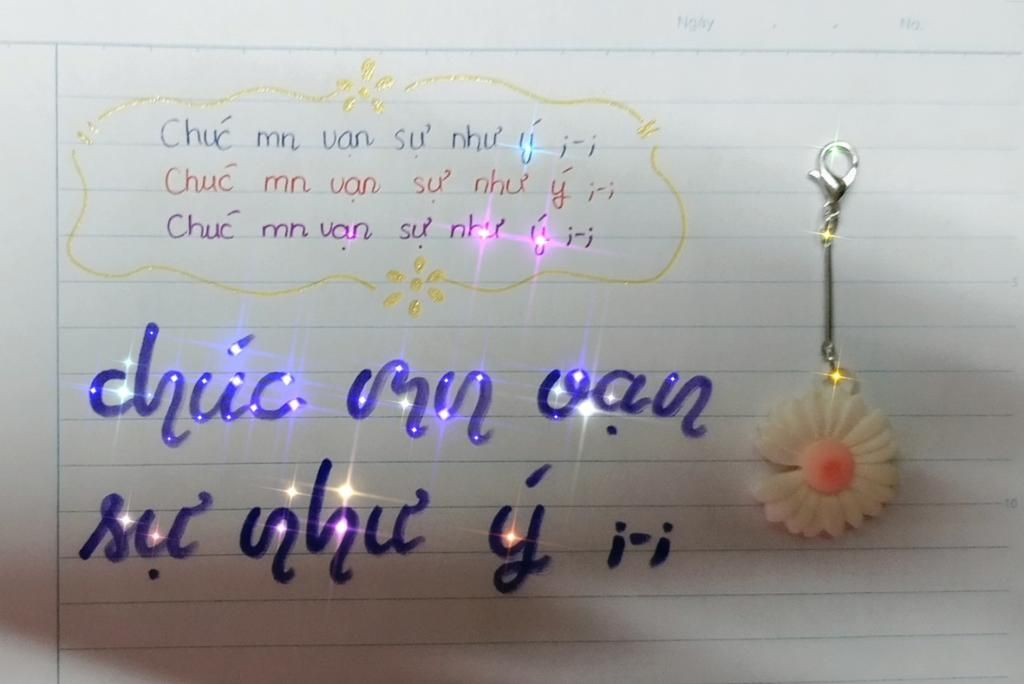 Ngày . . No.
Chúc mn vạn sự như ý ;-;
Chúc mn vạn sự như ý ;-;
Chúc mn vạn sự như ý ;-;
5
chúc mn vạn
10
sự như ý ;-;